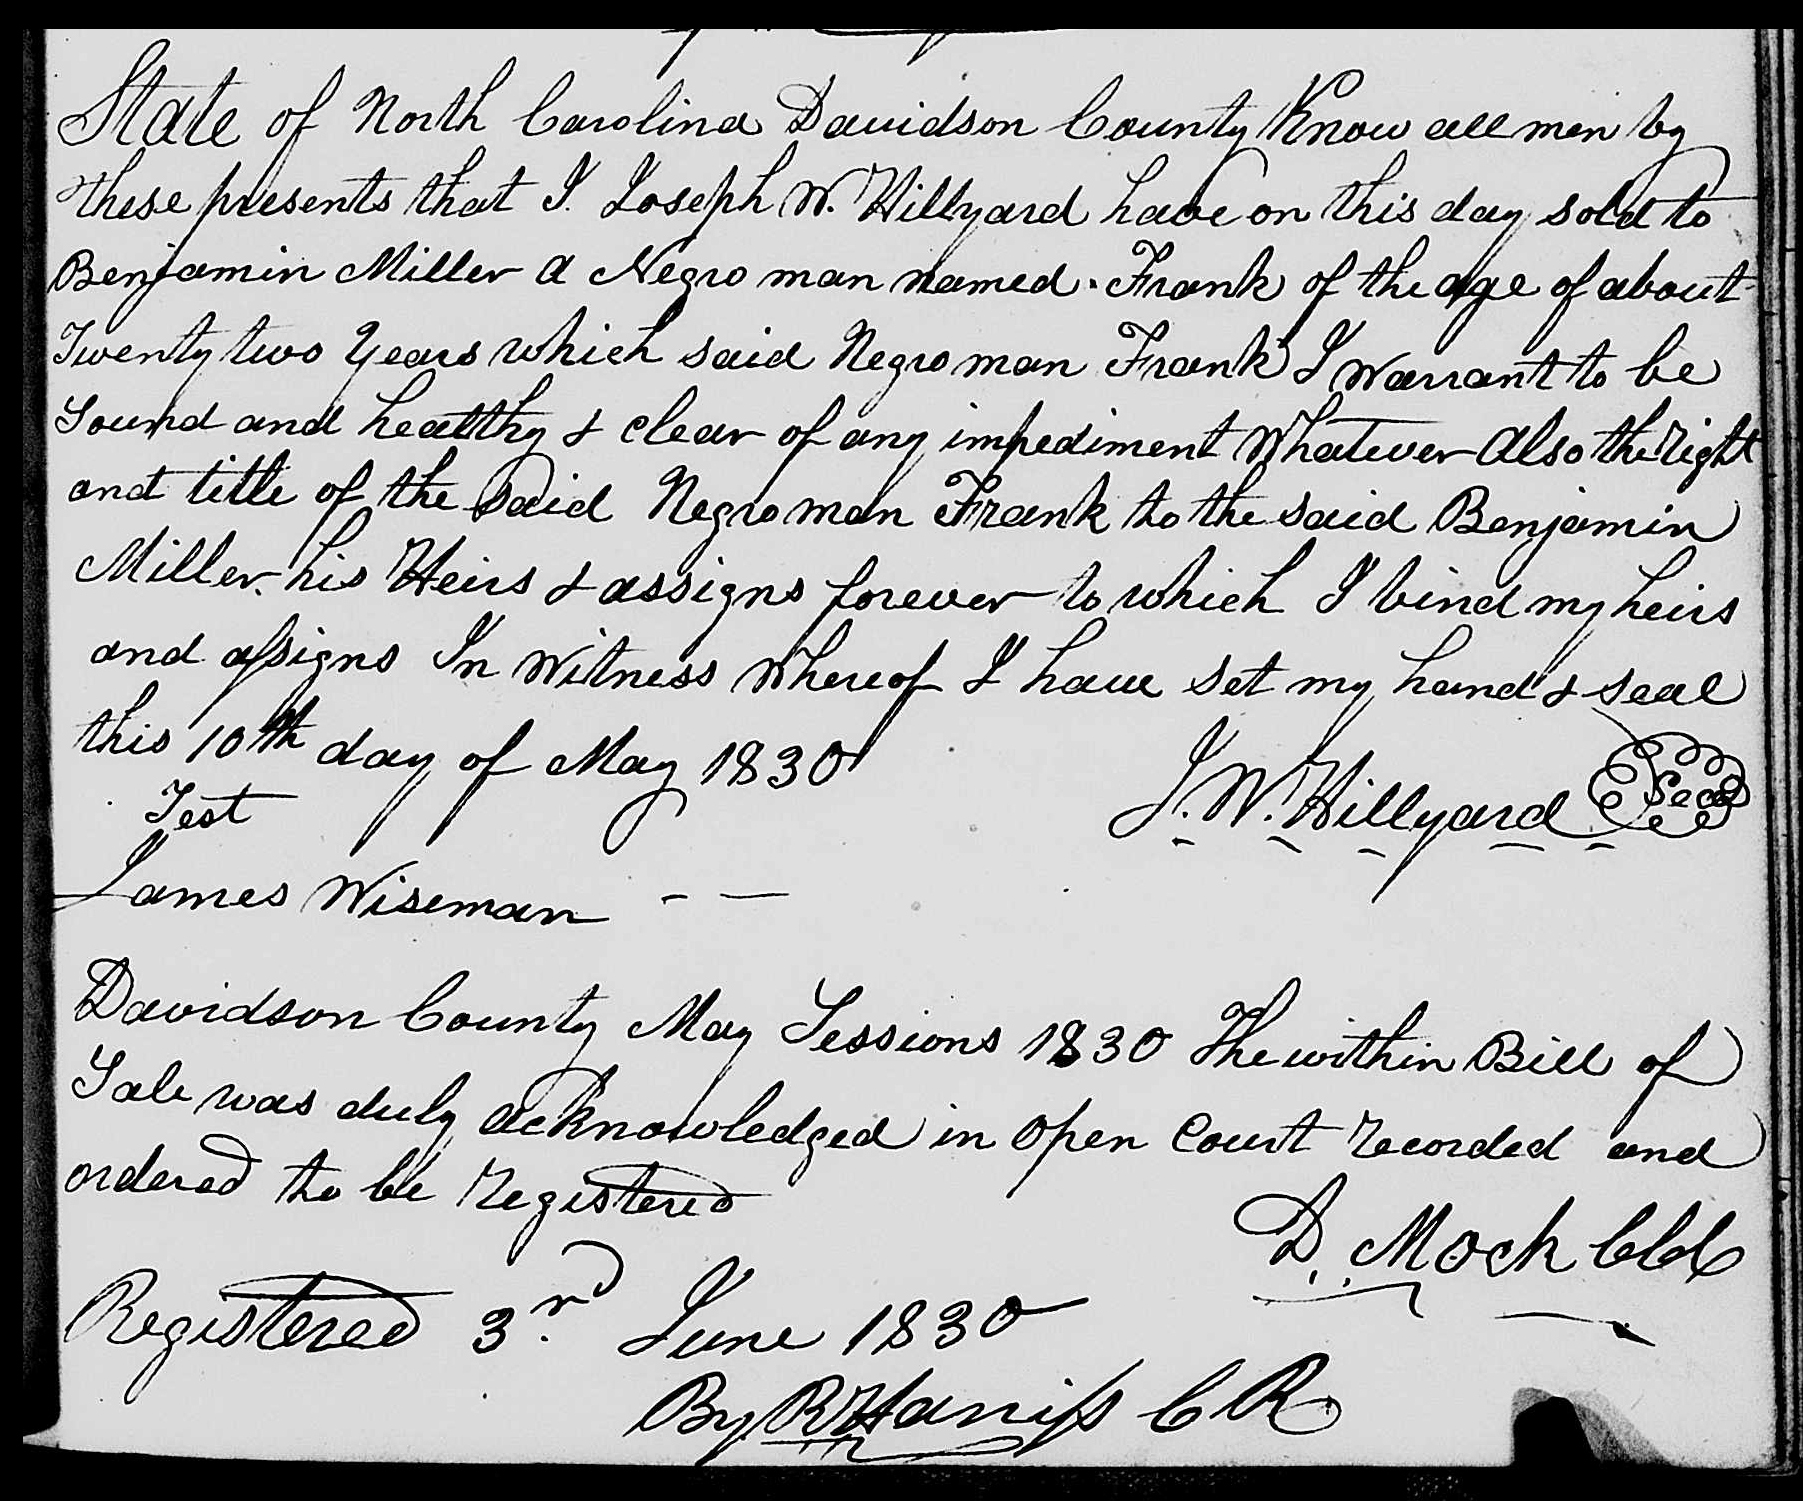 State of North Carolina Davidson County Know all men by
these presents that I. Joseph W. Hillyard have on this day sold to
Benjamin Miller a Negro man named Frank of the age of about
Twenty two Years which said Negro man Frank I warrant to be
Sound and healthy & clear of any impediment whatever also the right
and title of the said Negro man Frank to the said Benjamin
Miller his Heirs & assigns forever to which I bind my heirs
and assigns In witness whereof I have set my hand & seal
this 10th day of May 1830
J. W. Hillyard Seal
Test
James Wiseman
Davidson County May Sessions 1830 The within Bill of
Sale was duly acknowledged in open court recorded and
ordered to be registered
D. Mock Clk
Registered 3rd June 1830
By R Hariss C R